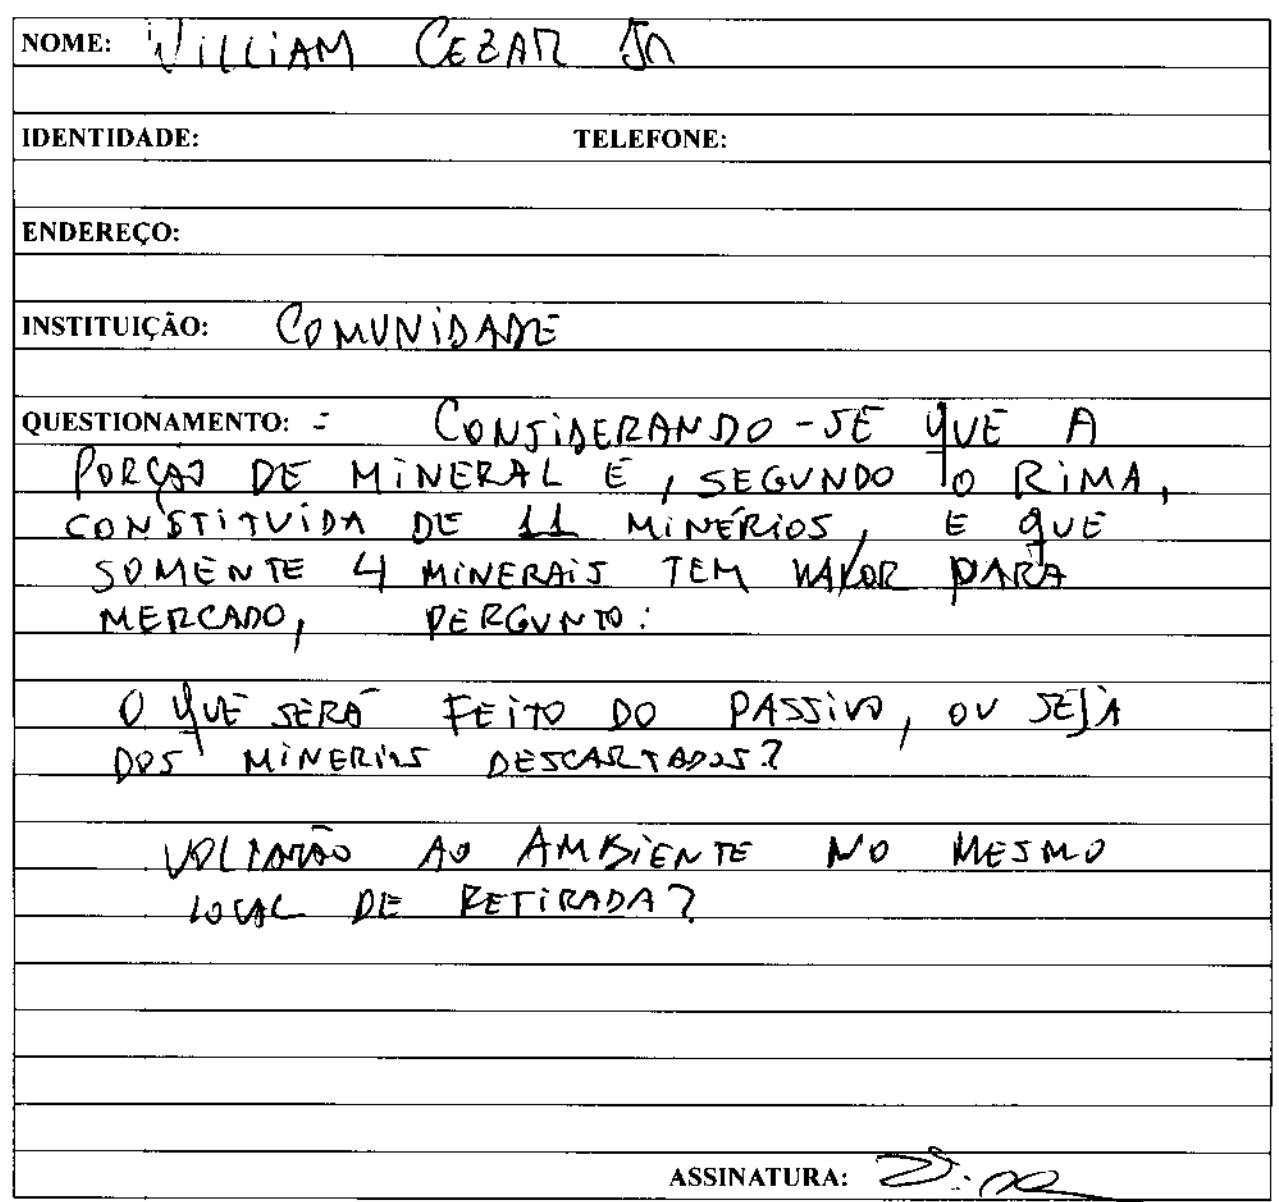 NOME: WILLIAM CEZAR Jr
IDENTIDADE: TELEFONE:
ENDEREÇO:
INSTITUIÇÃO: COMUNIDADE
QUESTIONAMENTO: - CONSIDERANDO-SE QUE A
PORÇÃO DE MINERAL É, SEGUNDO O RIMA,
CONSTITUÍDA DE 11 MINÉRIOS, E QUE
SOMENTE 4 MINERAIS TEM VALOR PARA
MERCADO, PERGUNTO:
O QUE SERÁ FEITO DO PASSIVO, OU SEJA
DOS MINERIOS DESCARTADOS?
VOLTARÃO AO AMBIENTE NO MESMO
LOCAL DE RETIRADA?
ASSINATURA: